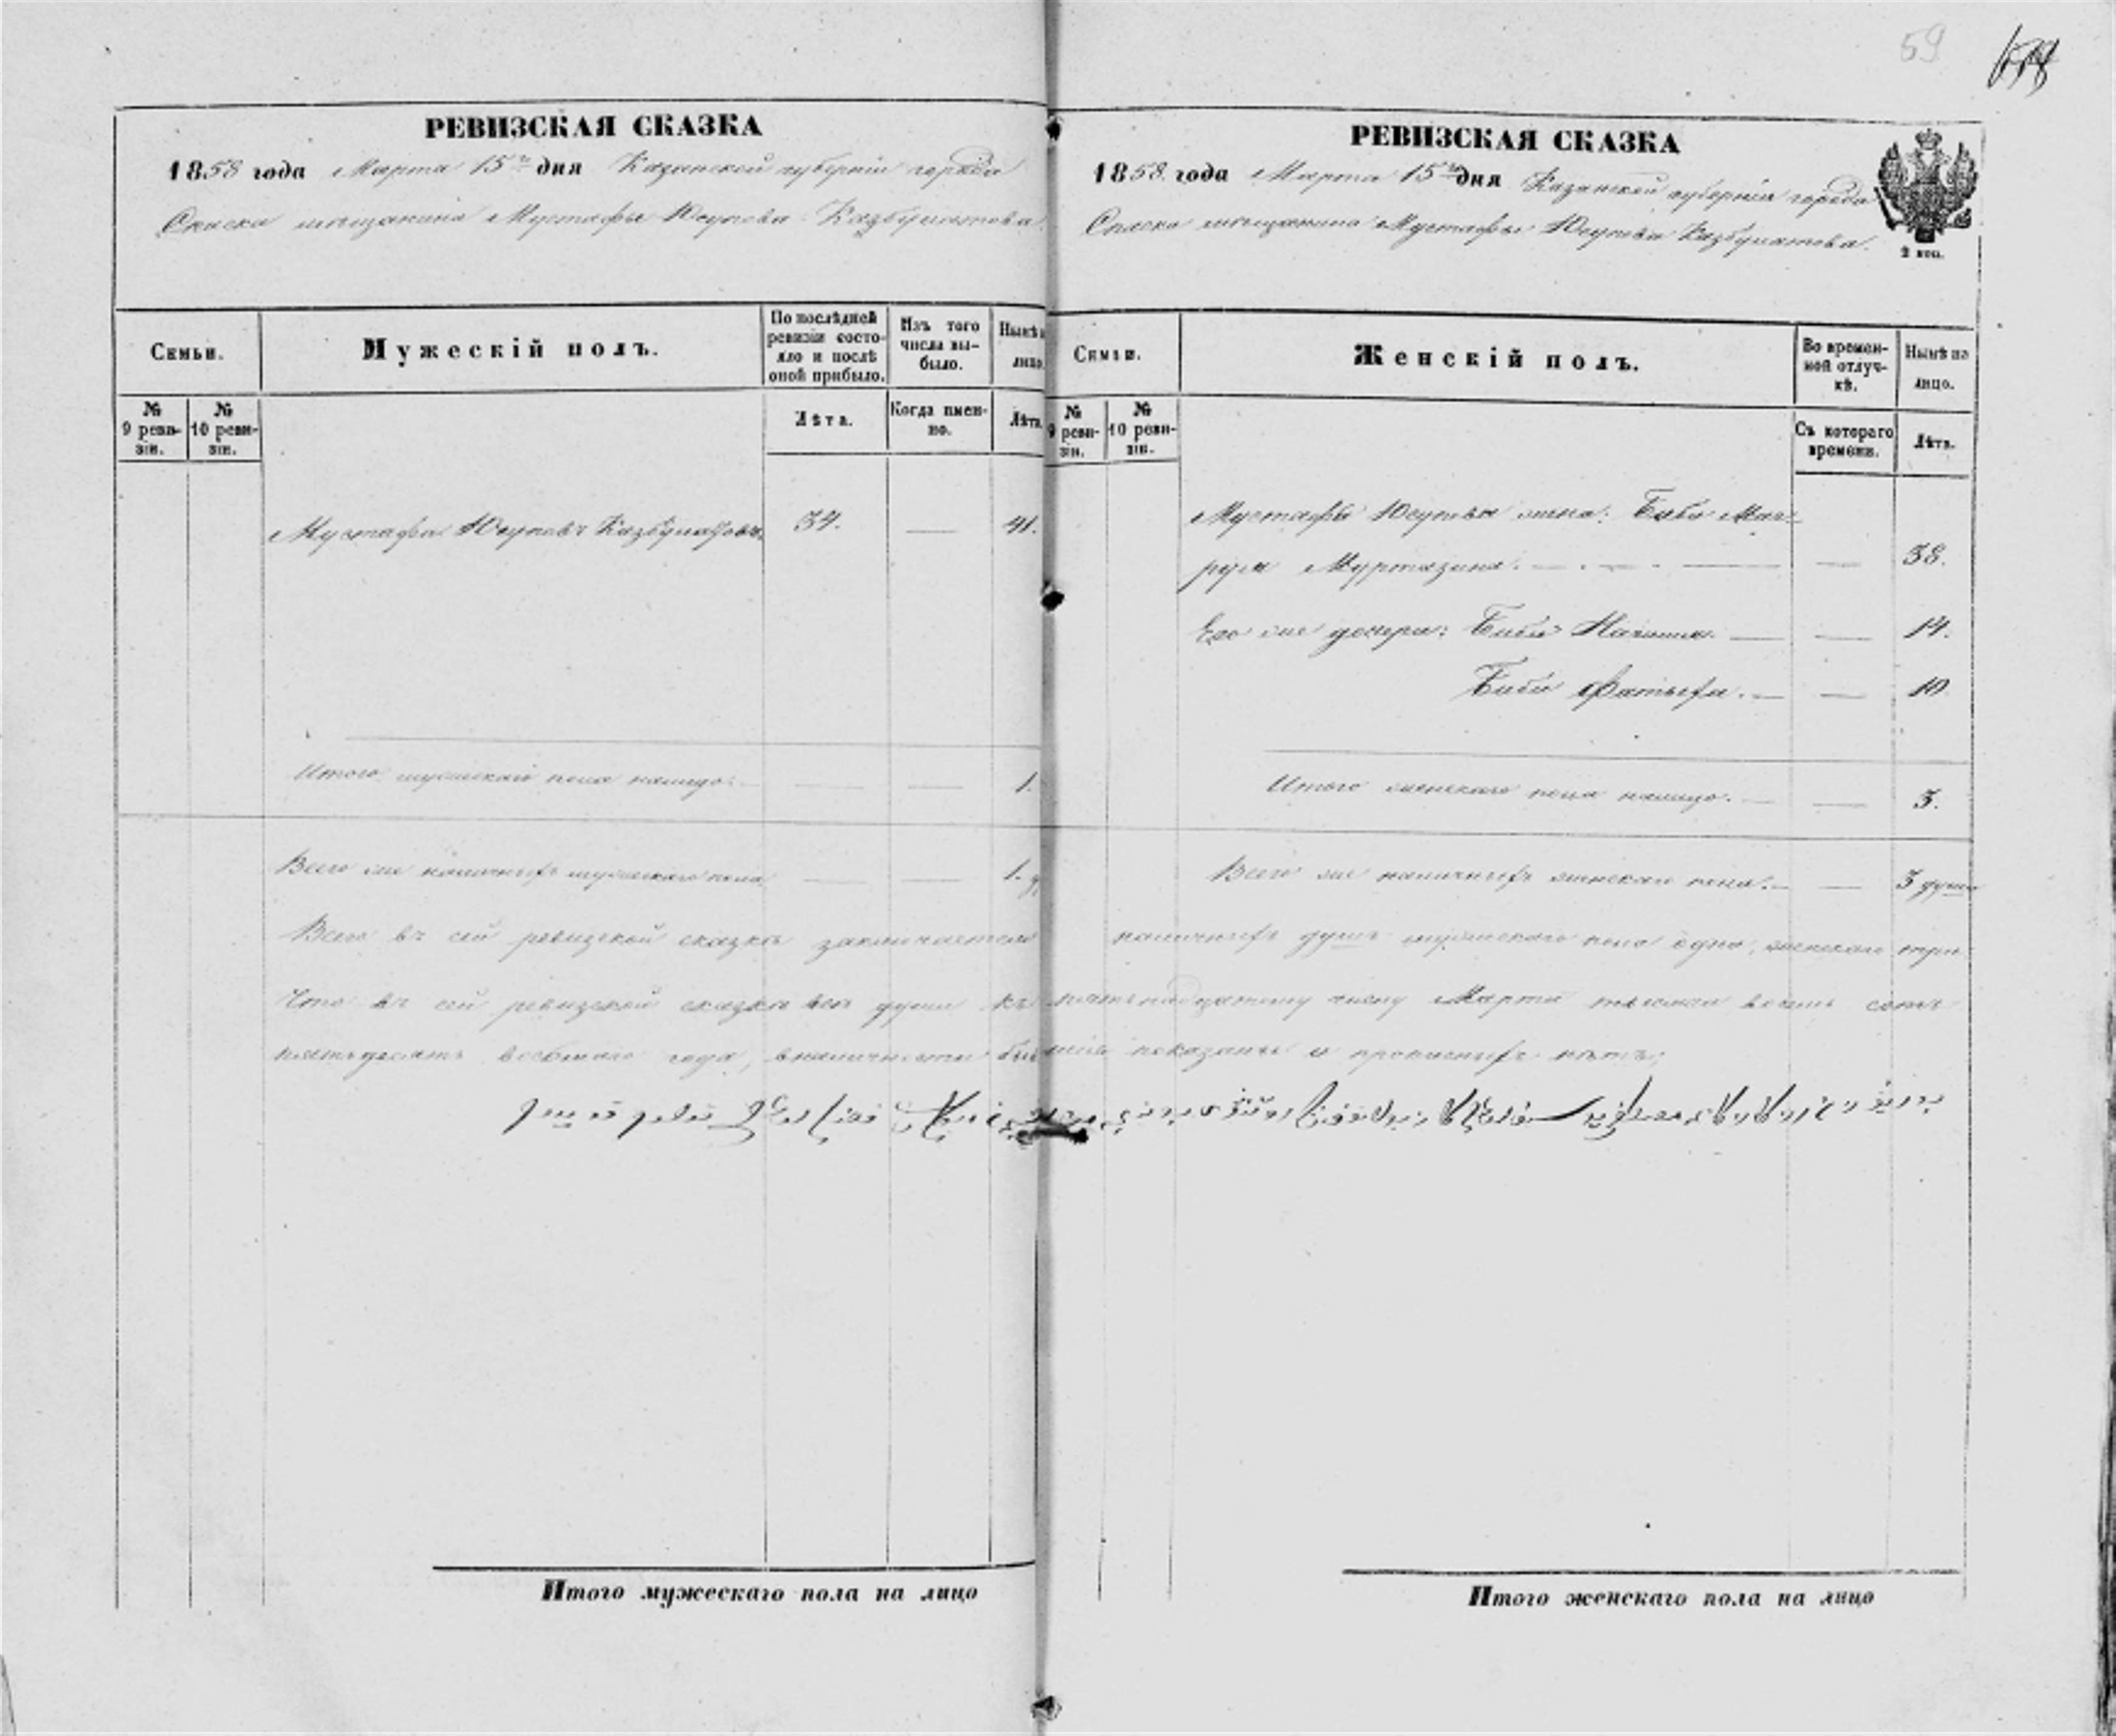 59
РЕВИЗСКАЯ СКАЗКА
1858 года Марта 15го дня Казанской губерніи города
Спаска мѣщанина Мустафы Юсупова Казбулатова.
Семьи.
Мужескій полъ.
По послѣдней ревизіи состояло и послѣ оной прибыло.
Изъ того числа выбыло.
Нынѣ на лицо.
№ 9 ревизіи.
№ 10 ревизіи.
Лѣта.
Когда именно.
Лѣта.
Мустафа Юсуповъ Казбулатовъ. 34. — 41.
Итого мужескаго пола налицо. — — 1.
Всего же наличныхъ мужескаго пола — — 1. д.
РЕВИЗСКАЯ СКАЗКА
1858 года Марта 15го дня Казанской губерніи города
Спаска мѣщанина Мустафы Юсупова Казбулатова.
2 коп.
Семьи.
Женскій полъ.
Во временной отлучкѣ.
Нынѣ на лицо.
№ 9 ревизіи.
№ 10 ревизіи.
Съ котораго времени.
Лѣта.
Мустафы Юсупова жена: Биби
Муртазина. — — 38.
Его же дочери: Биби — — 14.
Биби — — 10
Итого женскаго пола налицо. — — 3.
Всего же наличныхъ женскаго пола. — — 3 души
Всего въ сей ревизской сказкѣ заключается наличныхъ душъ мужескаго пола одна, женскаго три
Что въ сей ревизской сказкѣ всѣ души къ пятьнадцатому числу Марта тысяча восемь сотъ
пятьдесятъ восьмаго года, въ наличности бывшіе показаны и прописныхъ нѣтъ;
Итого мужескаго пола на лицо
Итого женскаго пола на лицо